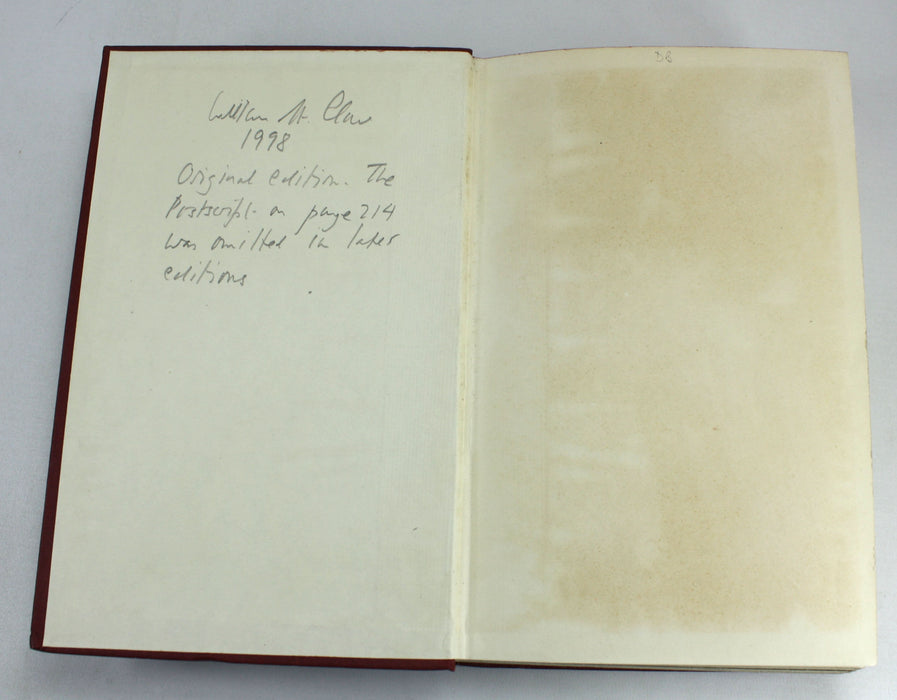 William St. Clair
1998
Original edition. The
Postscript on page 214
was omitted in later
editions
DB